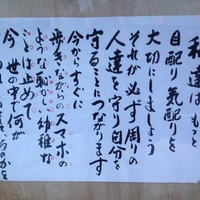 私達はもっと
目配り気配りを
大切にしましょう
それが必ず周りの
人達を守り自分を
守ることにつながります
今からすぐに
歩きながらのスマホの
ような恥しい幼稚な
ことは止めて
今世の中で何が